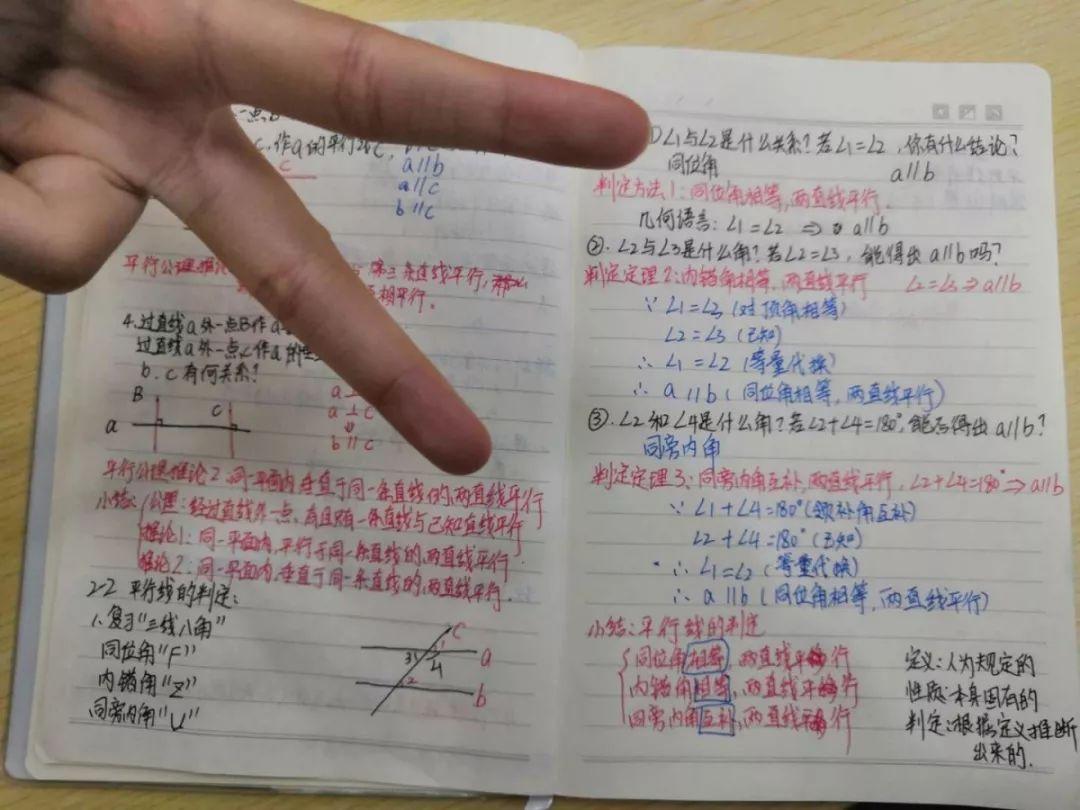 c.作a的平行线c,
c
a∥b
a∥c
b∥c
平行公理推论
第三条直线平行,那么
互相平行。
4.过直线a外一点B作a
过直线a外一点c作a的
b.c有何关系?
B
c
a
a⊥
a⊥c
⇓
b∥c
平行公理推论2:同一平面内,垂直于同一条直线的两直线平行
小结:公理:经过直线外一点,有且只有一条直线与已知直线平行
推论1:同一平面内,平行于同一条直线的两直线平行.
推论2:同一平面内,垂直于同一条直线的两直线平行.
2-2 平行线的判定:
1、复习"三线八角"
同位角"F"
内错角"Z"
同旁内角"U"
c
1
3
4
a
2
b
∠1与∠2是什么关系?若∠1=∠2,你有什么结论?
同位角
a∥b
判定方法1:同位角相等,两直线平行.
几何语言:∠1=∠2 ⇒ a∥b
②.∠2与∠3是什么角?若∠2=∠3,能得出a∥b吗?
判定定理2:内错角相等,两直线平行 ∠2=∠3⇒a∥b
∵ ∠1=∠3(对顶角相等)
∠2=∠3(已知)
∴ ∠1=∠2(等量代换)
∴ a∥b(同位角相等,两直线平行)
③.∠2和∠4是什么角?若∠2+∠4=180°,能否得出a∥b?
同旁内角
判定定理3:同旁内角互补,两直线平行,∠2+∠4=180°⇒a∥b
∵ ∠1+∠4=180°(邻补角互补)
∠2+∠4=180°(已知)
∴ ∠1=∠2(等量代换)
∴ a∥b(同位角相等,两直线平行)
小结:平行线的判定
同位角相等,两直线平行
内错角相等,两直线平行
同旁内角互补,两直线平行
定义:人为规定的
性质:本身固有的
判定:根据定义推断
出来的.